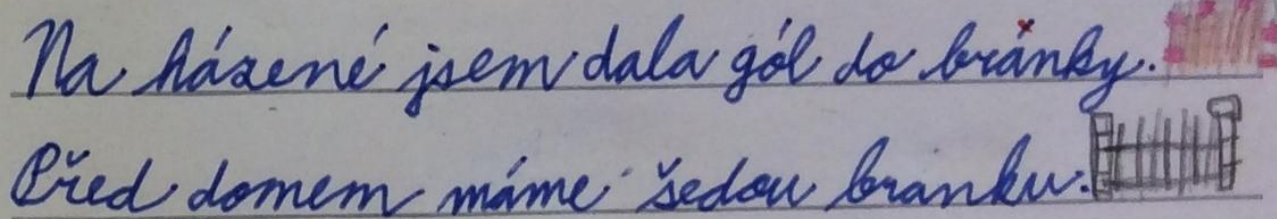 Na házené jsem dala gól do bránky.
Před domem máme šedou branku.